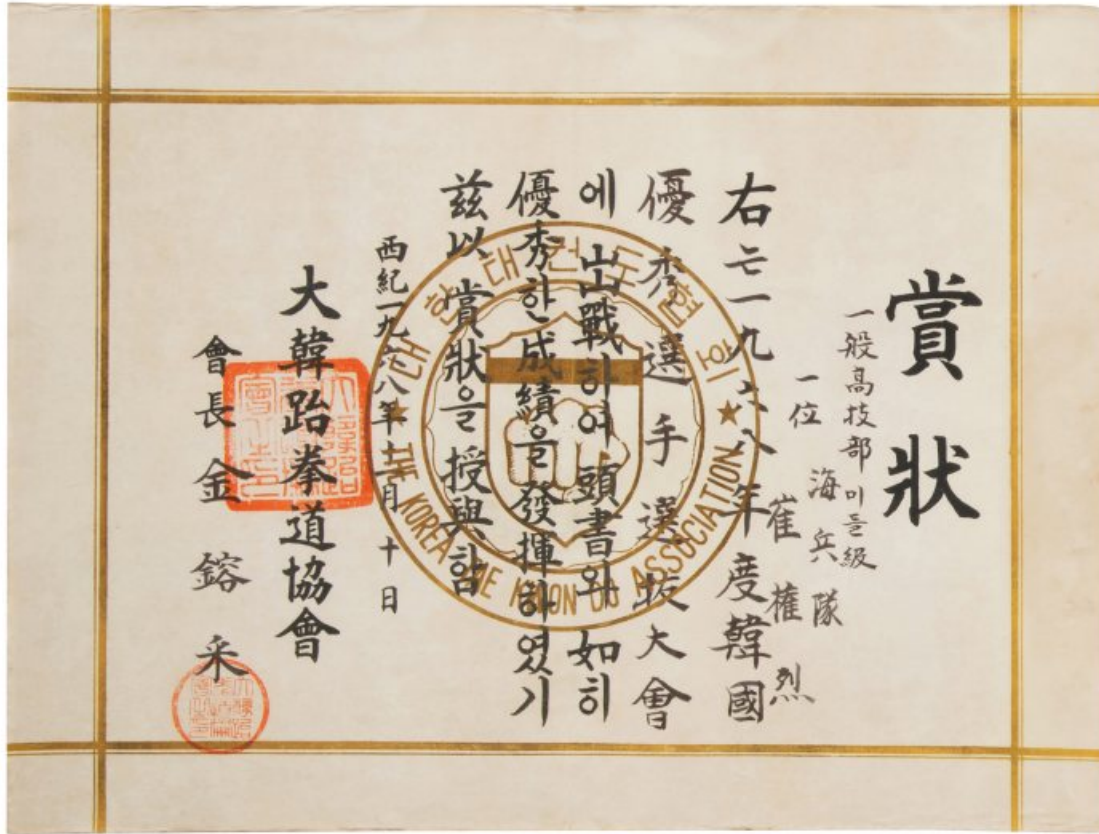 賞狀
一般高技部 미들級
一位 海兵隊
崔權烈
右는一九六八年度韓國
優秀選手選拔大會
에 出戰하여 頭書와 如히
優秀한 成績을 發揮하였기
玆以 賞狀을 授與함
西紀一九六八年十月 十日
大韓跆拳道協會
會長 金鎔采
대한태권도협회
THE KOREA TAE KWON DO ASSOCIATION